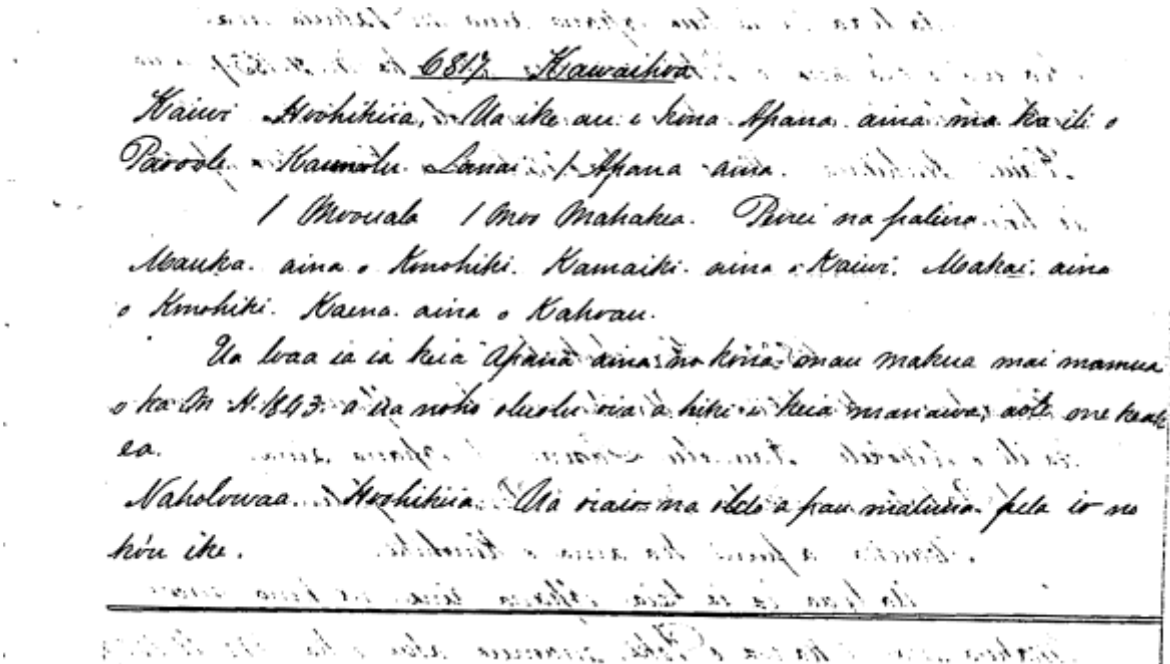 6817 Kawaihoa
Kaiwi Hoohikiia, Ua ike au i kona Apana aina ma ka ili o
Pawole. Kaunolu. Lanai 1 Apana aina.
1 Moouala 1 Moo Mahakea. Penei na palina
Mauka. aina o Konohiki. Kamaiki. aina o Kaiwi. Makai. aina
o Konohiki. Kaena. aina o Kahoau.
Ua loaa ia ia keia Apana aina no kona mau makua mai mamua
o ka M.H. 1843. a ua noho oluolu oia a hiki i keia manawa; aole mea keak
ea.
Naholowaa. Hoohikiia. Ua oiaio na olelo a pau maluna. pela io no
ko'u ike.